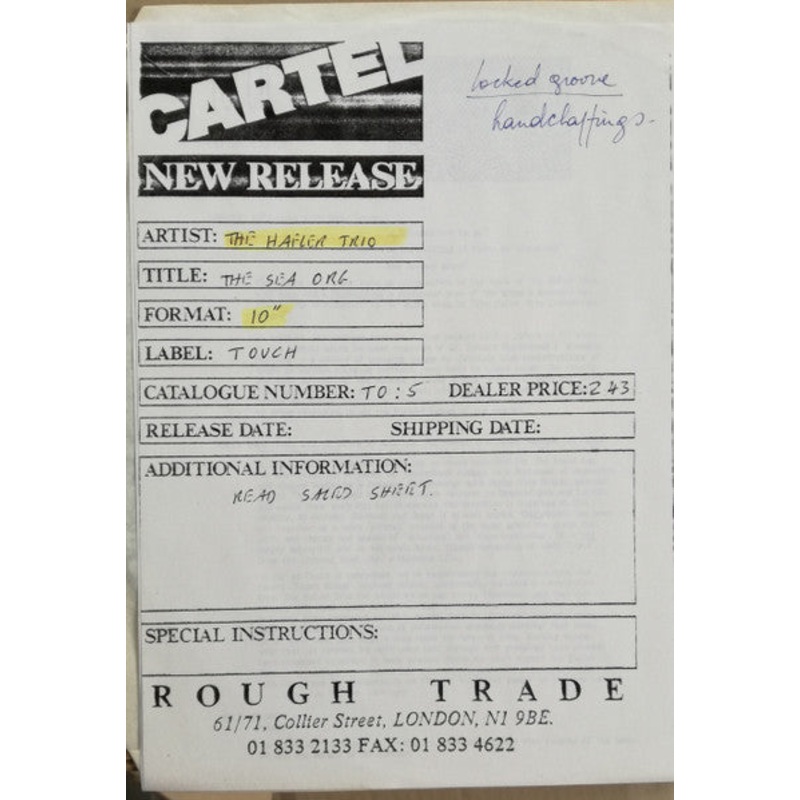 CARTEL
locked groove
handclappings.
NEW RELEASE
ARTIST: THE HAFLER TRIO
TITLE: THE SEA ORG
FORMAT: 10"
LABEL: TOUCH
CATALOGUE NUMBER: TO:5 DEALER PRICE: 2 43
RELEASE DATE: SHIPPING DATE:
ADDITIONAL INFORMATION:
READ SALES SHEET.
SPECIAL INSTRUCTIONS:
ROUGH TRADE
61/71, Collier Street, LONDON, N1 9BE.
01 833 2133 FAX: 01 833 4622